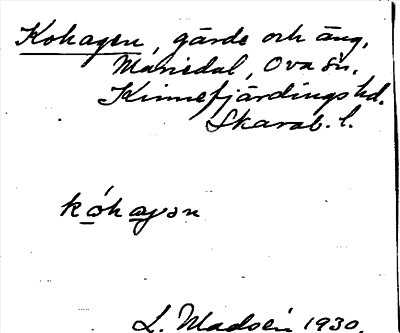 Kohagen, gärde och äng,
Mariedal, Ova sn.
Kinnefjärdings hd.
Skarab. l.
kóhagən
L. Madsén 1930.